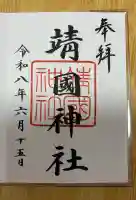 奉拝
靖國神社
令和八年六月十五日
靖國
神社